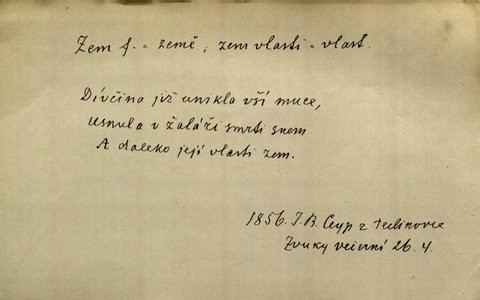 Zem f. = země; zem vlasti = vlast.
Dívčina již unikla vší muce,
Usnula v žaláři smrti snem
A daleko její vlasti zem.
1856. J. B. Ceyp z Peclinovce
Zvuky večerní 26. 4.